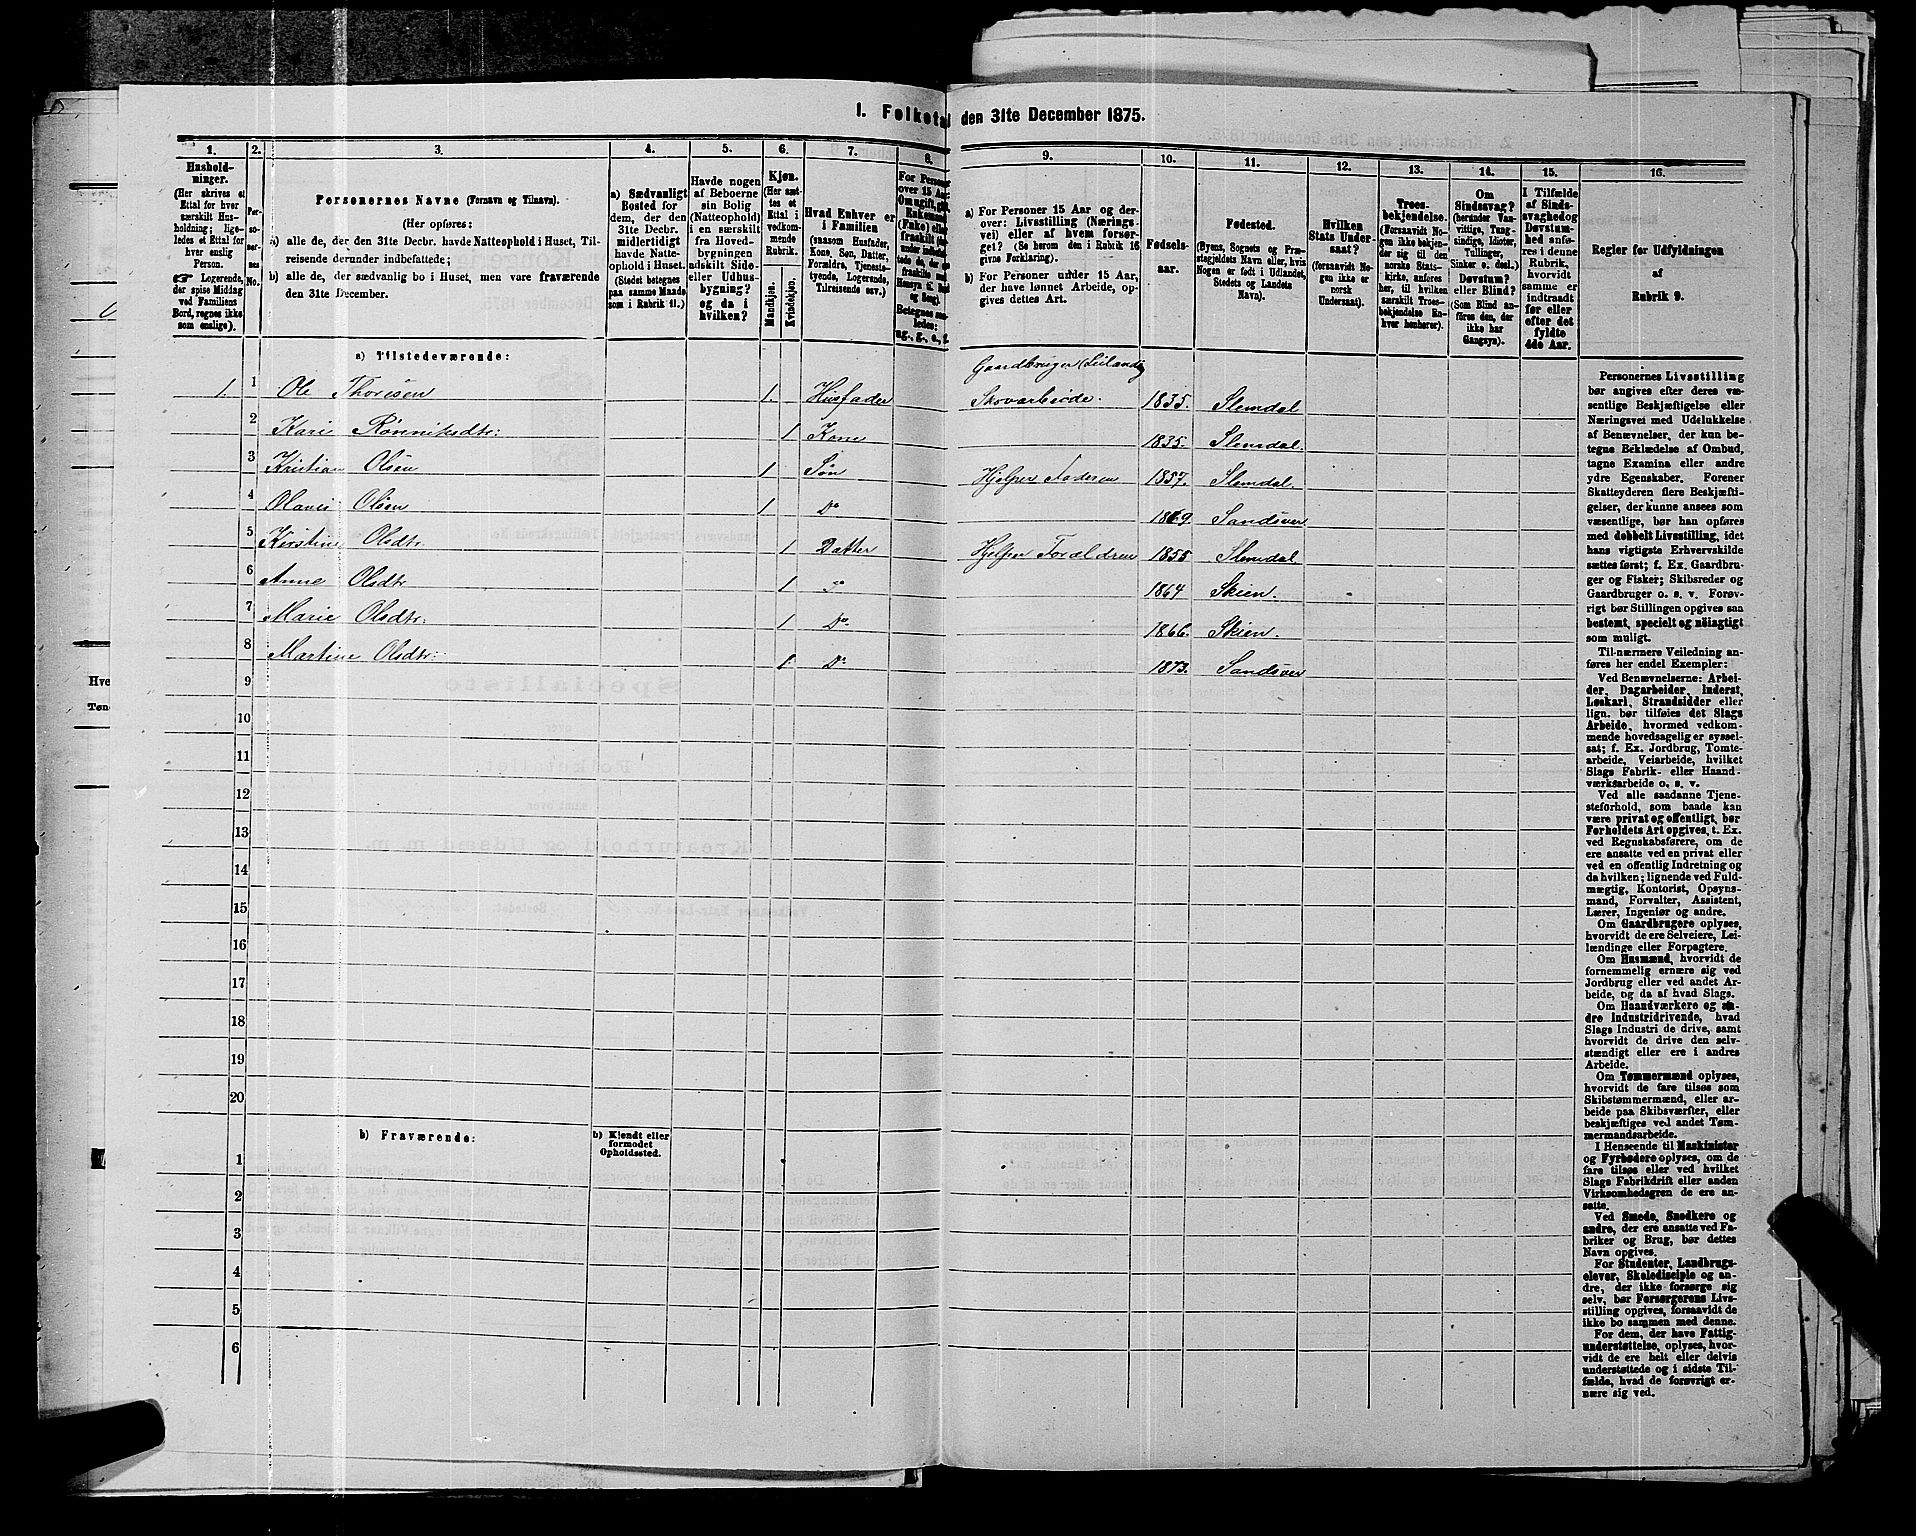 1. Folketal den 31te December 1875.
1.
Hushold-
ninger.
(Her skrives et
Ettal for hver
særskilt Hus-
holdning; lige-
ledes et Ettal for
hver enslig
Person.
☛ Logerende,
der spise Middag
ved Familiens
Bord, regnes ikke
som enslige).
2.
Per-
soner-
nes
No.
3.
Personernes Navne (Fornavn og Tilnavn).
(Her opføres:
a) alle de, der den 31te Decbr. havde Natteophold i Huset, Til-
reisende derunder indbefattede;
b) alle de, der sædvanlig bo i Huset, men vare fraværende
den 31te December.
4.
a) Sædvanligt
Bosted for
dem, der den
31te Decbr.
midlertidigt
havde Natte-
ophold i Huset.
(Stedet betegnes
paa samme Maade
som i Rubrik 11.)
5.
Havde nogen
af Beboerne
sin Bolig
(Natteophold)
i en særskilt
fra Hoved-
bygningen
adskilt Side-
eller Udhus-
bygning?
og da i
hvilken?
6.
Kjøn.
(Her sæt-
tes et
Ettal i
vedkom-
mende
Rubrik.
Mandkjøn.
Kvindekjøn.
7.
Hvad Enhver er
i Familien
(saasom Husfader,
Kone, Søn, Datter,
Forældre, Tjeneste-
tyende, Logerende,
Tilreisende osv.)
8.
For Personer
over 15 Aar
9.
a) For Personer 15 Aar og der-
over: Livsstilling (Nærings-
vei) eller af hvem forsør-
get? (Se herom den i Rubrik 16
givne Forklaring).
b) For Personer under 15 Aar,
der have lønnet Arbeide, op-
gives dettes Art.
10.
Fødsels-
aar.
11.
Fødested.
(Byens, Sognets og Præ-
stegjeldets Navn eller, hvis
Nogen er født i Udlandet,
Stedets og Landets
Navn).
12.
Hvilken
Stats Under-
saat?
(forsaavidt No-
gen ikke er
norsk
Undersaat).
13.
Troes-
bekjendelse.
(Forsaavidt No-
gen ikke bekjen-
der sig til den
norske Stats-
kirke, anføres
her, til hvilken
særskilt Troes-
bekjendelse En-
hver henhører).
14.
Om
Sindssvag?
(herunder Van-
vittige, Tung-
sindige, Idioter,
Tullinger,
Sinker o. desl.)
Døvstum?
eller Blind?
(Som Blind an-
føres den, der
ikke har
Gangsyn).
15.
I Tilfælde
af Sinds-
svaghed og
Døvstum-
hed anfø-
res i denne
Rubrik,
hvorvidt
samme er
indtraadt
før eller
efter det
fyldte
4de Aar.
16.
Regler for Udfyldningen
af
Rubrik 9.
a) Tilstedeværende:
Gaardbruger (Leilænd)
1. 1 Ole Thorisen 1. Husfader Skovarbeide. 1835. Slemdal
2 Kari Rønniksdtr: 1 Kone 1835. Slemdal.
3 Kristian Olsen 1 Søn Hjelper Faderen 1857. Slemdal.
4 Olavis Olsen 1 Do 1869. Sandsver
5 Kirstine Olsdtr. 1 Datter Hjelper Forældren 1855 Slemdal
6 Anne Olsdtr 1 Do 1864 Skien.
7 Marie Olsdtr: 1 Do. 1866. Skien.
8 Martine Olsdtr: 1 Do 1873. Sandsver
9
10
11
12
13
14
15
16
17
18
19
20
b) Fraværende:
b) Kjendt eller
formodet
Opholdssted.
1
2
3
4
5
6
Personernes Livsstilling
bør angives efter deres væ-
sentlige Beskjæftigelse eller
Næringsvei med Udelukkelse
af Benævnelser, der kun be-
tegne Beklædelse af Ombud,
tagne Examina eller andre
ydre Egenskaber. Forener
Skatteyderen flere Beskjæfti-
gelser, der kunne ansees som
væsentlige, bør han opføres
med dobbelt Livsstilling, idet
hans vigtigste Erhvervskilde
sættes først; f. Ex. Gaardbru-
ger og Fisker; Skibsreder og
Gaardbruger o. s. v. Forøv-
rigt bør Stillingen opgives saa
bestemt, specielt og nøiagtigt
som muligt.
Til nærmere Veiledning an-
føres her endel Exempler:
Ved Benævnelserne: Arbei-
der, Dagarbeider, Inderst,
Løskarl, Strandsidder eller
lign. bør tilføies det Slags
Arbeide, hvormed vedkom-
mende hovedsagelig er syssel-
sat; f. Ex. Jordbrug, Tomte-
arbeide, Veiarbeide, hvilket
Slags Fabrik- eller Haand-
værksarbeide o. s. v.
Ved alle saadanne Tjene-
steforhold, som baade kan
være privat og offentligt, bør
Forholdets Art opgives, t. Ex.
ved Regnskabsførere, om de
ere ansatte ved en privat eller
ved en offentlig Indretning og
da hvilken; lignende ved Fuld-
mægtig, Kontorist, Opsyns-
mand, Forvalter, Assistent,
Lærer, Ingeniør og andre.
Om Gaardbrugere oplyses,
hvorvidt de ere Selveiere, Lei-
lændinge eller Forpagtere.
Om Husmænd, hvorvidt de
fornemmelig ernære sig ved
Jordbrug eller ved andet Ar-
beide, og da af hvad Slags.
Om Haandværkere og an-
dre Industridrivende, hvad
Slags Industri de drive, samt
hvorvidt de drive den selv-
stændigt eller ere i andres
Arbeide.
Om Tømmermænd oplyses,
hvorvidt de fare tilsøs som
Skibstømmermænd, eller ar-
beide paa Skibsværfter, eller
beskjæftiges ved andet Tøm-
mermandsarbeide.
I Henseende til Maskinister
og Fyrbødere oplyses, om de
fare tilsøs eller ved hvilket
Slags Fabrikdrift eller anden
Virksomhedsgren de ere an-
satte.
Ved Smede, Snedkere og
andre, der ere ansatte ved Fa-
briker og Brug, bør dettes
Navn opgives.
For Studenter, Landbrugs-
elever, Skoledisciple og an-
dre, der ikke forsørge sig
selv, bør Forsørgerens Livs-
stilling opgives, forsaavidt de
ikke bo sammen med denne.
For dem, der have Fattig-
understøttelse, oplyses, hvor-
vidt de ere helt eller delvis
understøttede og i sidste Til-
fælde, hvad de forøvrigt er-
nære sig ved.